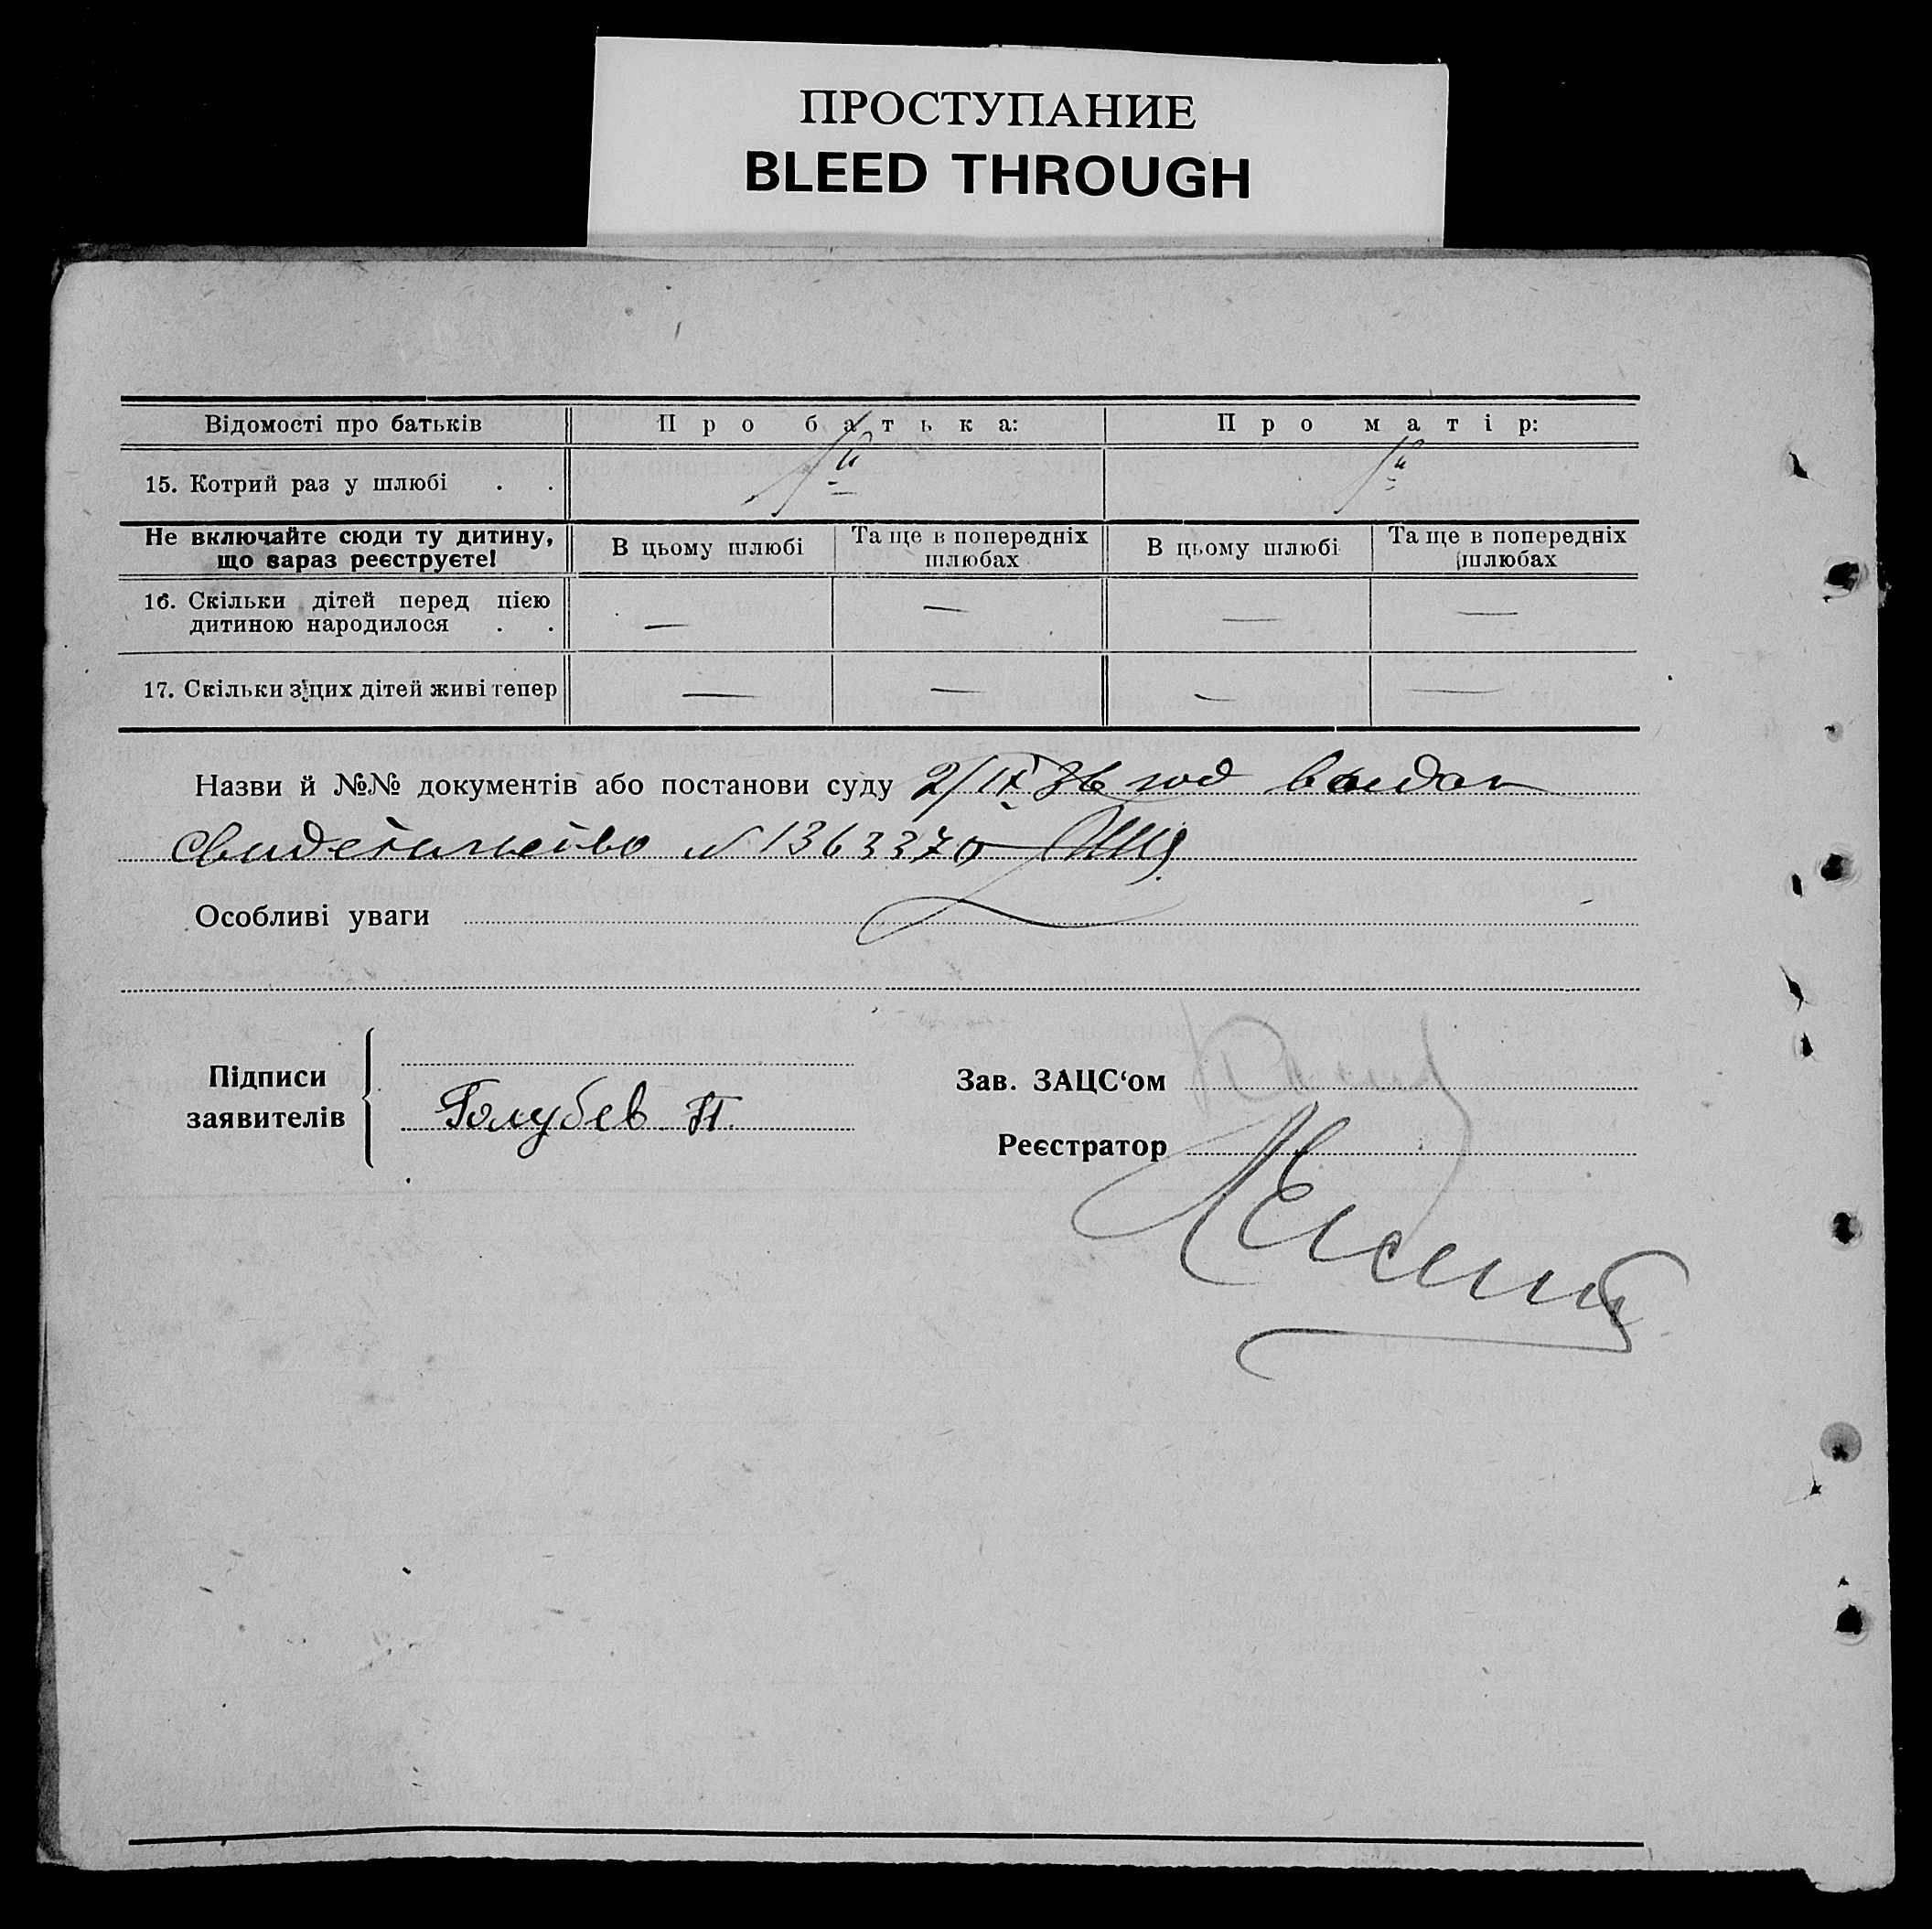 ПРОСТУПАНИЕ
BLEED THROUGH
Відомості про батьків Про батька: Про матір:
15. Котрий раз у шлюбі . . 1й 1й
Не включайте сюди ту дитину, що зараз реєструєте! В цьому шлюбі Та ще в попередніх шлюбах В цьому шлюбі Та ще в попередніх шлюбах
16. Скільки дітей перед цією дитиною народилося . . — — — —
17. Скільки з цих дітей живі тепер — — — —
Назви й №№ документів або постанови суду 2/IX 36 год выдан
свидетельство N 1363370
Особливі уваги
Підписи заявителів
Голубев П.
Зав. ЗАЦС‘ом
Реєстратор